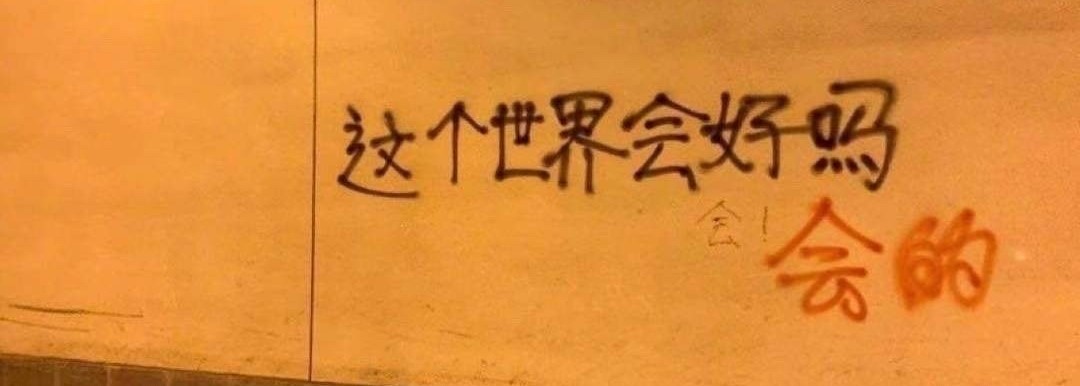 这个世界会好吗
会！
会的